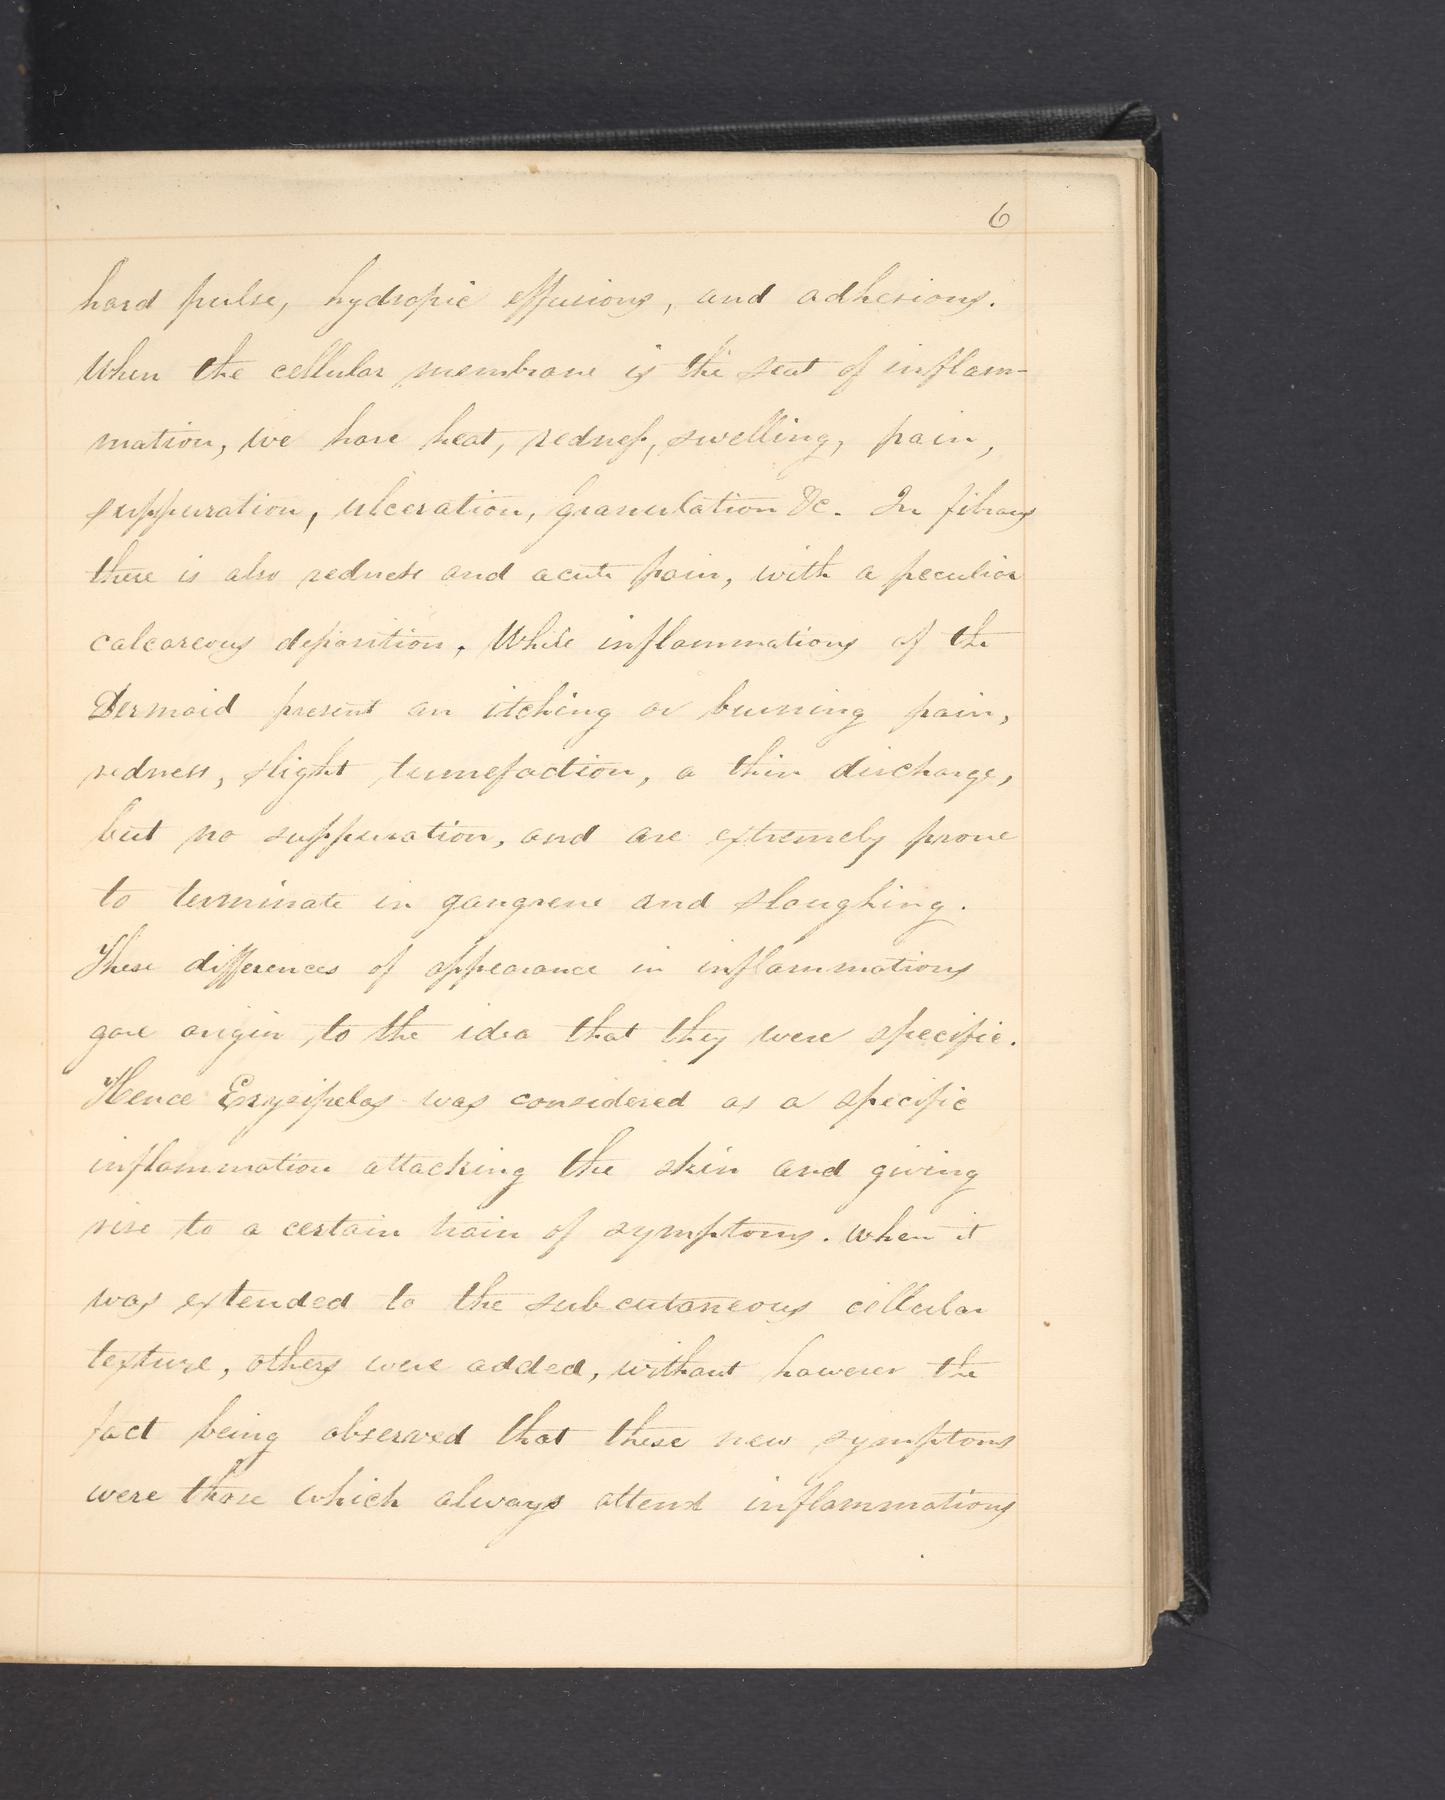 6
hard pulse, hydropic effusions, and adhesions.
When the cellular membrane is the seat of inflam-
mation, we have heat, redness, swelling, pain,
suppuration, ulceration, granulation &c. In fibrous
there is also redness and acute pain, with a peculiar
calcareous deposition. While inflammations of the
Dermoid present an itching or burning pain,
redness, slight tumefaction, a thin discharge,
but no suppuration, and are extremely prone
to terminate in gangrene and sloughing.
These differences of appearance in inflammations
gave origin to the idea that they were specific.
Hence Erysipelas was considered as a specific
inflammation attacking the skin and giving
rise to a certain train of symptoms. When it
was extended to the subcutaneous cellular
texture, others were added, without however the
fact being observed that these new symptoms
were those which always attend inflammations